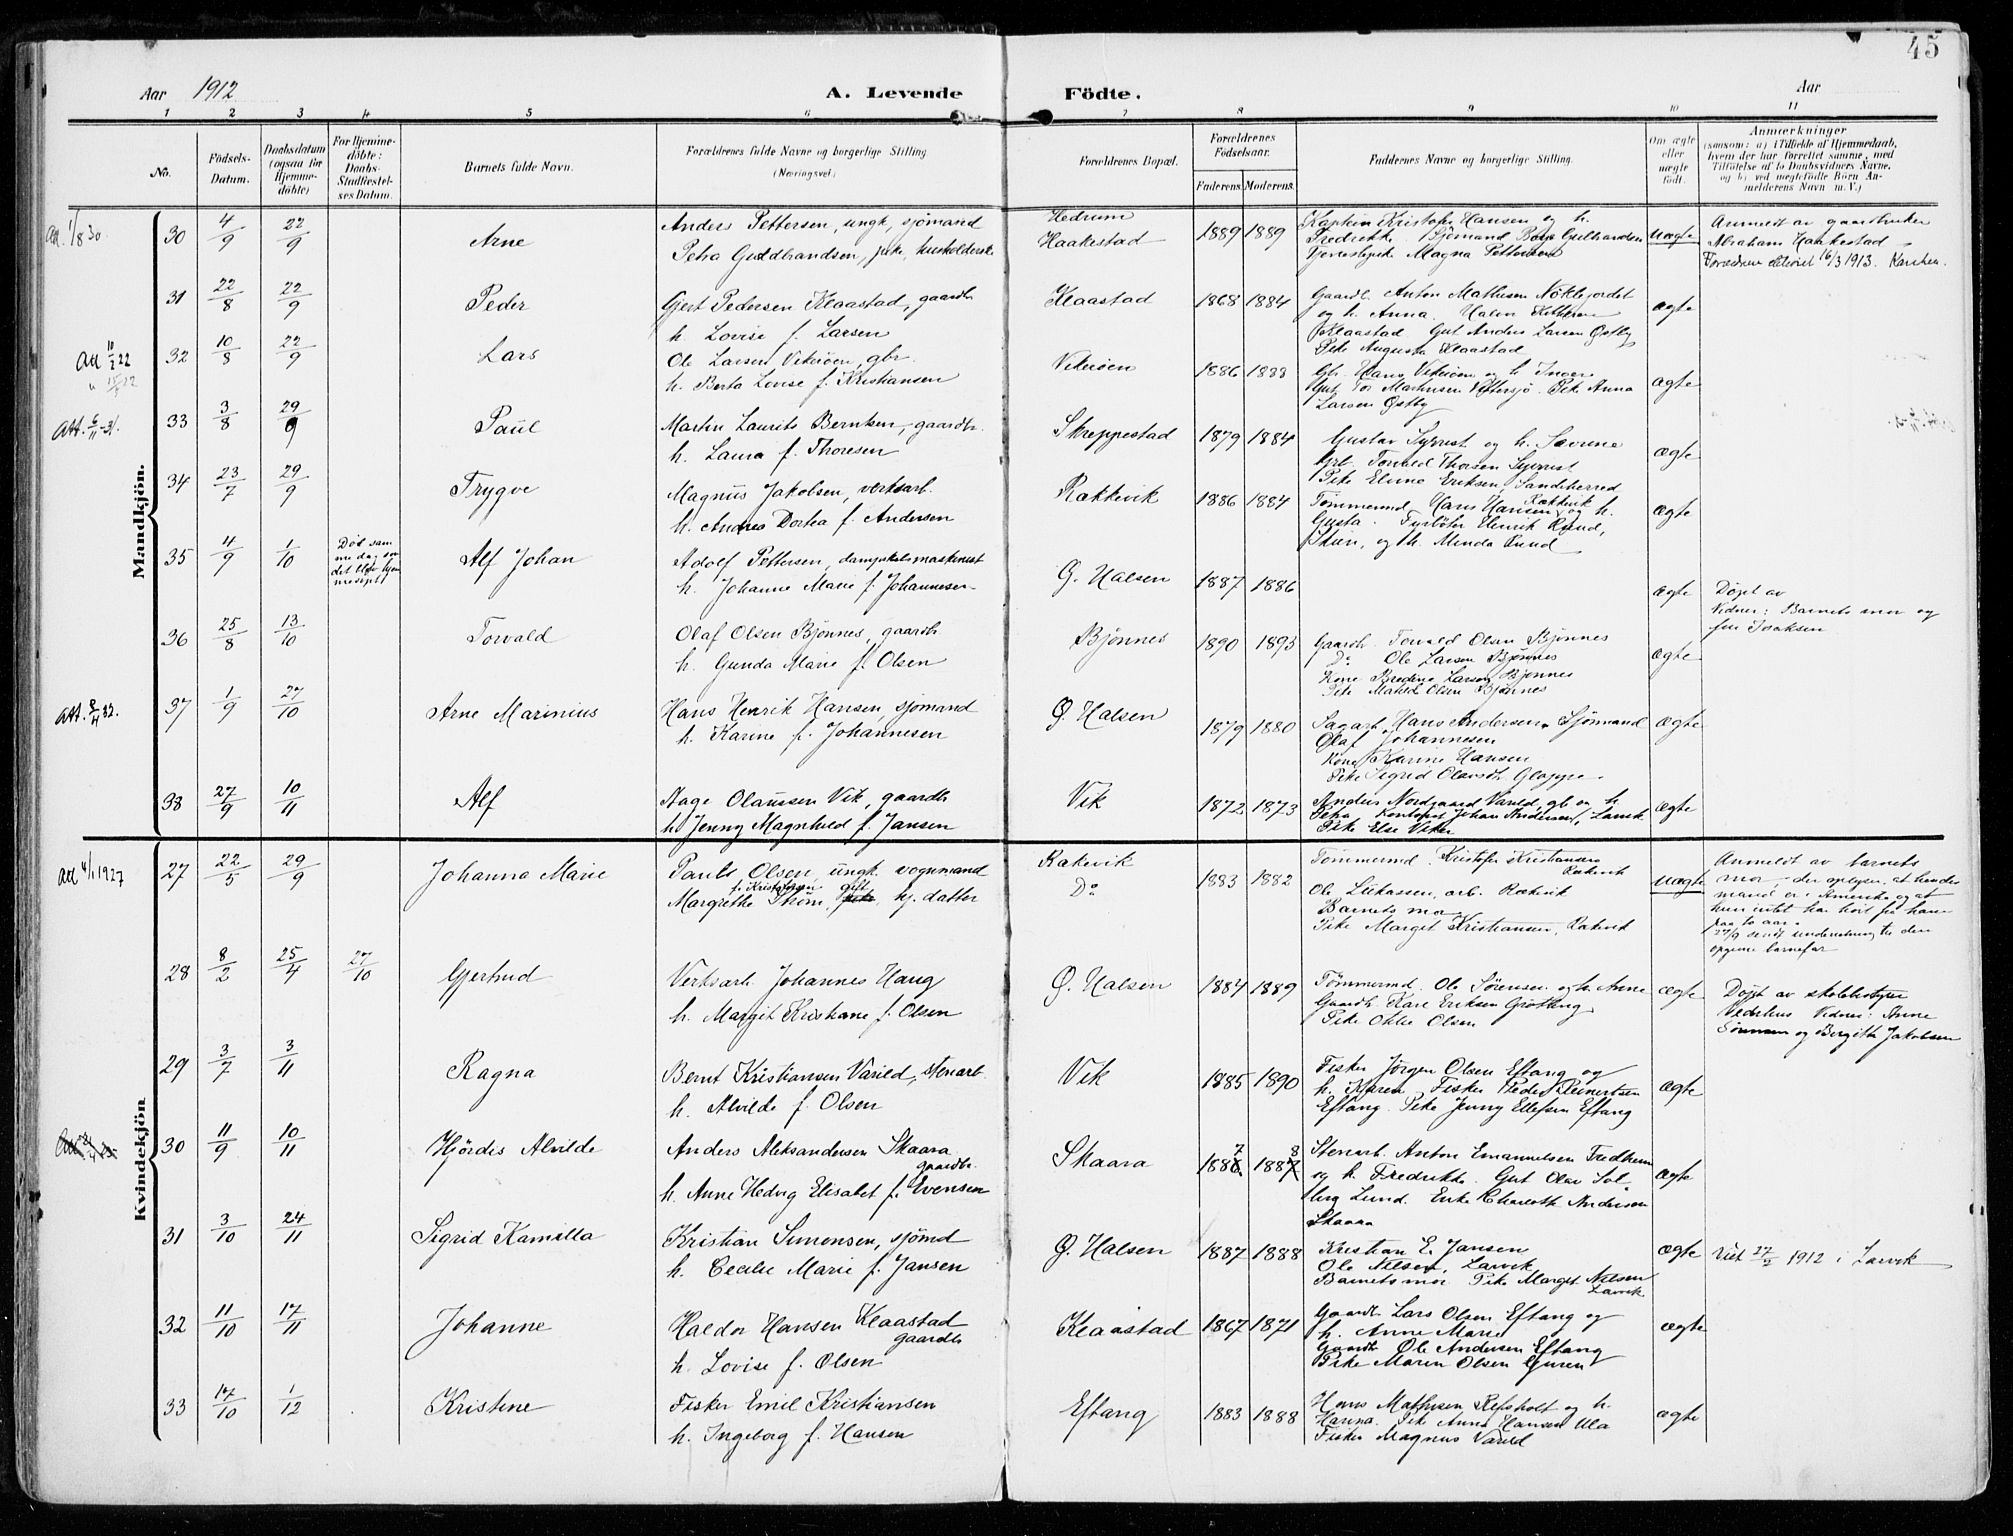 45
Aar 1912
A. Levende Födte.
Aar
1 2 3 4 5 6 7 8 9 10 11
No.
Födsels-Datum.
Daabsdatum (ogsaa for Hjemme-döbte)
For Hjemme-döbte: Daabs-Stadfæstel-ses Datum.
Barnets fulde Navn.
Forældrenes fulde Navne og borgerlige Stilling (Næringsvei.)
Forældrenes Bopæl.
Forældrenes Födselsaar.
Faderens. Moderens.
Faddernes Navne og borgerlige Stilling.
Om ægte eller uægte födt.
Anmærkninger
(saasom: a) i Tilfælde af Hjemmedaab,
hvem der har forrettet samme, med
Tilföielse af to Daabsvidners Navne.
og b) ved uægtefödte Börn An-
melderens Navn m. V.)
Mandkjön.
30 4/9 22/9 Arne
Anders Pettersen, ungk, sjömand
Petra Guldbrandsen, pike, husholderske
Hedrum
Haakestad
1889 1889
Kaptein Kristofer Hansen og h.
Fredrikke. Sjömand Guldbrandsen
Magna Pettersen
uægte
Anmeldt av gaardbruker
Abraham Haakestad
16/3 1913.
31 22/8 22/9 Peder
Gjert Pedersen Klaastad, gaardb
h. Lovise f. Larsen
Klaastad
1868 1884
Gaardb. Anton Mathisen Nöklegjordet
og h. Anna.
Klaastad. Gut Anders Larsen Østby
Pike Augusta Klaastad
ægte
Att 10/2 22
32 10/8 22/9 Lars
Ole Larsen Vikeröen, gbr.
h. Berta Lovise f. Kristiansen
Vikeröen
1886 1888
Gb. Hans Vikeröen og h. Inger
Gut Tor Martinsen Pike Anna
Larsen Østby
ægte
Att. 6/11-31.
33 3/8 29/9 Paul
Martin Laurits Berntsen, gaardb.
h. Laura f. Thoresen
Skreppestad
1879 1884
Gustav Syrrist og h. Severine
Torvald Thorsen Syrrist
Pike Eline Eriksen, Sandeherred
ægte
34 23/7 29/9 Trygve
Magnus Jakobsen, verksarb.
h. Andrea Dortea f. Andersen
Rakkevik
1886 1884
Tømmermd Hans Hansen Rakkevik og h.
Gusta. Fyrböter Henrik Ruud,
Skien, og h. Minda Ruud
ægte
35 4/9 1/10
Död sam
me dag som
det blev hjem
medöpt
Alf Johan
Adolf Pettersen, dampskibsmaskinist
h. Johanne Marie f. Johannesen
Ø. Halsen
1887 1886
ægte
Döpt av
Vidner: Barnets mor og
fru Isaksen
36 25/8 13/10 Torvald
Olaf Olsen Bjönnes, gaardb.
h. Gunda Marie f. Olsen
Bjönnes
1890 1893
Gaardb. Torvald Olsen Bjönnes
Do Ole Larsen Bjönnes
Kone Bredine Larsen Bjönnes
Pike Matild Olsen Bjönnes
ægte
Att. 8/4 32.
37 1/9 27/10 Arne Marinius
Hans Henrik Hansen, sjömand
h. Karine f. Johannesen
Ø. Halsen
1879 1880
Sagarb. Hans Andersen. Sjömand
Olaf Johannesen
Kone Karine Hansen
Pike Sigrid
ægte
38 27/9 10/11 Alf
Aage Olaussen Vik, gaardb
h. Jenny Magnhild f. Jansen
Vik
1872 1873
Anders Nordgaard Varild, gb og h.
Petra Kontorist Johan Andersen, Larvik
Pike Else Viker
ægte
Kvindekjön
27 22/5 29/9 Johanna Marie
Paul Olsen, ungk. vognmand
f. Kristofersen gift
Margrethe Thom, pike, hj. datter
Rakevik
Do
1883 1882
Tömmermd. Kristofer Kristiansen
Rakevik
Ole Lukassen, arb. Rakevik
Barnets mor
Pike Marget Kristiansen, Rakevik
uægte
Anmeldt av barnets
mor - der oplyser, at hendes
mand er i Amerika og at
hun intet har hört fra ham
paa to aar.
27/9 sendt underretning til den
opgivne barnefar
28 8/2 25/4 27/10 Gjertrud
Verksarb. Johannes Haug
h. Margit Kristiane f. Olsen
Ø. Halsen
1884 1889
Tömmermd. Ole Sörensen og h. Anne
Gaardb. Karl Eriksen Grötting
Pike Olsen
ægte
Döpt av skolebestyrer
Vidner: Anne
Sörensen og Bergitte Jakobsen
29 3/7 3/11 Ragna
Bernt Kristiansen Varild, stenarb.
h. Alvilde f. Olsen
Vik
1885 1890
Fisker Jörgen Olsen Eftang og
h. Karen. Fisker Peder Reinertsen
Eftang. Pike Jenny Ellefsen Eftang
ægte
30 11/9 10/11 Hjördis Alvilde
Anders Aleksandersen Skaara
gaardb.
h. Anne Hedvig Elisabet f. Evensen
Skaara
1887 1888
Stenarb. Anton Emanuelsen Fredheim
og h. Fredrikke. Gut Olav Sol
berg Lund. Enke Charlotte Andersen
Skaara
ægte
31 3/10 24/11 Sigrid Kamilla
Kristian Simonsen, sjömd
h. Cecilie Marie f. Jansen
Ø. Halsen
1887 1888
Kristian E. Jansen
Ole Nilsen, Larvik
Barnets mor Pike Marget Nilsen
Larvik
ægte
Viet 27/2 1912 i Larvik
32 11/10 17/11 Johanne
Haldor Hansen Klaastad
gaardb
h. Lovise f. Olsen
Klaastad
1867 1871
Gaardb Lars Olsen Eftang og
h. Anne Marie
Gaardb Ole Andersen Eftang
Pike Maren Olsen Guren
ægte
33 17/10 1/12 Kristine
Fisker Emil Kristiansen
h. Ingeborg f. Hansen
Eftang
1883 1888
Hans Mathisen Refsholt og h.
Harina. Pike Anna Hansen Ula
Fisker Magnus Varild
ægte